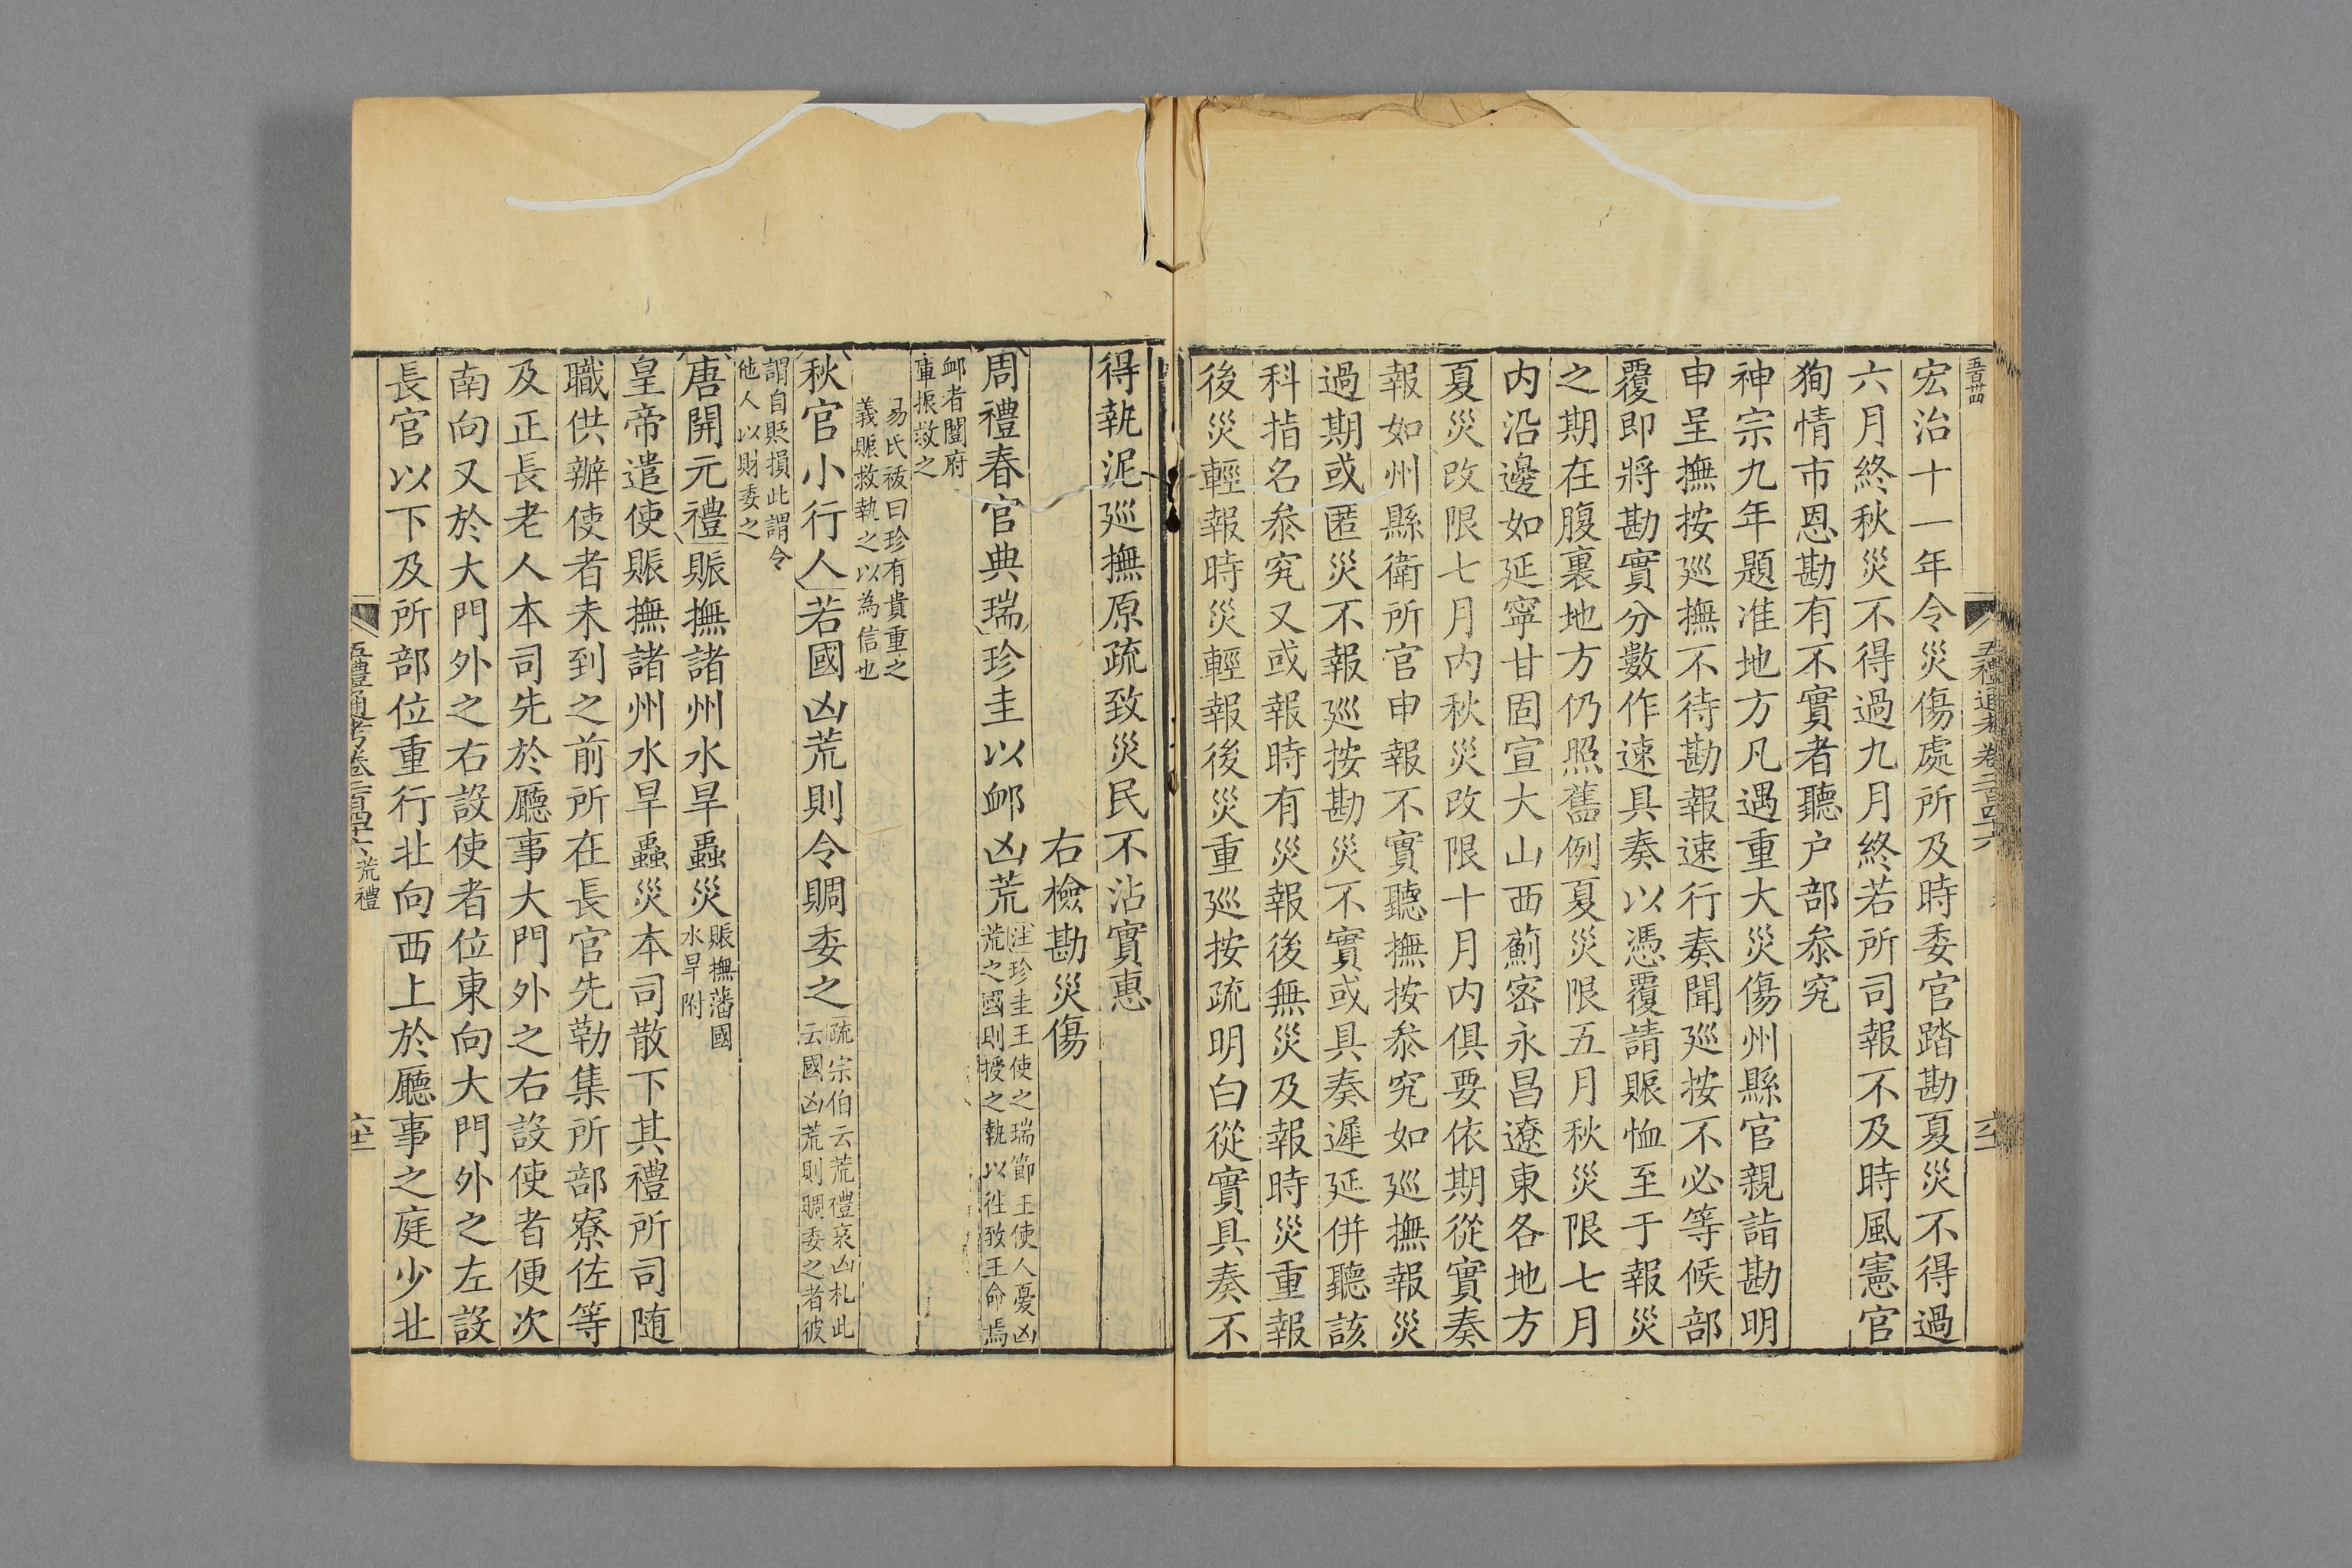 宏治十一年令災傷處所及時委官踏勘夏災不得過
六月終秋災不得過九月終若所司報不及時風憲官
狥情市恩勘有不實者聽户部叅究
神宗九年題准地方凡遇重大災傷州縣官親詣勘明
申呈撫按廵撫不待勘報速行奏聞廵按不必等候部
覆即將勘實分數作速具奏以憑覆請賑恤至于報災
之期在腹裏地方仍照舊例夏災限五月秋災限七月
内沿邊如延寧甘固宣大山西薊密永昌遼東各地方
夏災改限七月内秋災改限十月内俱要依期從實奏
報如州縣衛所官申報不實聽撫按叅究如廵撫報災
過期或匿災不報廵按勘災不實或具奏遲延併聽該
科指名叅究又或報時有災報後無災及報時災重報
後災輕報時災輕報後災重廵按疏明白從實具奏不
得執泥廵撫原疏致災民不沾實惠
右檢勘災傷
周禮春官典瑞珍圭以䘏凶荒
注珍圭王使之瑞節王使人憂凶
荒之國則授之執以徃致王命焉
䘏者闓府
庫振救之
易氏祓曰珍有貴重之
義賑救執之以為信也
秋官小行人若國凶荒則令賙委之
疏宗伯云荒禮哀凶札此
云國凶荒則賙委之者彼
謂自貶損此謂令
他人以財委之
唐開元禮賑撫諸州水旱蟲災
賑撫藩國
水旱附
皇帝遣使賑撫諸州水旱蟲災本司散下其禮所司随
職供辦使者未到之前所在長官先勒集所部寮佐等
及正長老人本司先於廳事大門外之右設使者便次
南向又於大門外之右設使者位東向大門外之左設
長官以下及所部位重行北向西上於廳事之庭少北
五禮通考卷二百四十六 荒禮